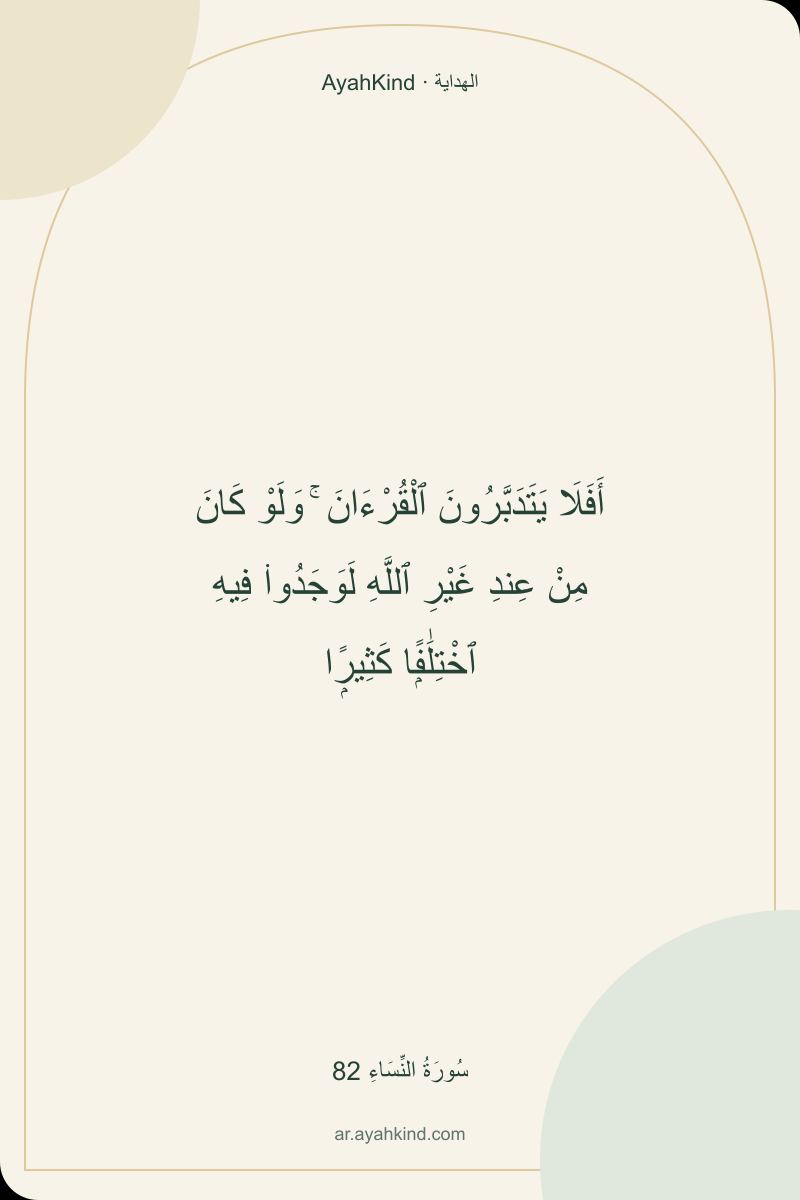 AyahKind · الهداية
أَفَلَا يَتَدَبَّرُونَ ٱلْقُرْءَانَ ۚ وَلَوْ كَانَ
مِنْ عِندِ غَيْرِ ٱللَّهِ لَوَجَدُوا۟ فِيهِ
ٱخْتِلَٰفًۭا كَثِيرًۭا
سُورَةُ النِّسَاءِ 82
ar.ayahkind.com